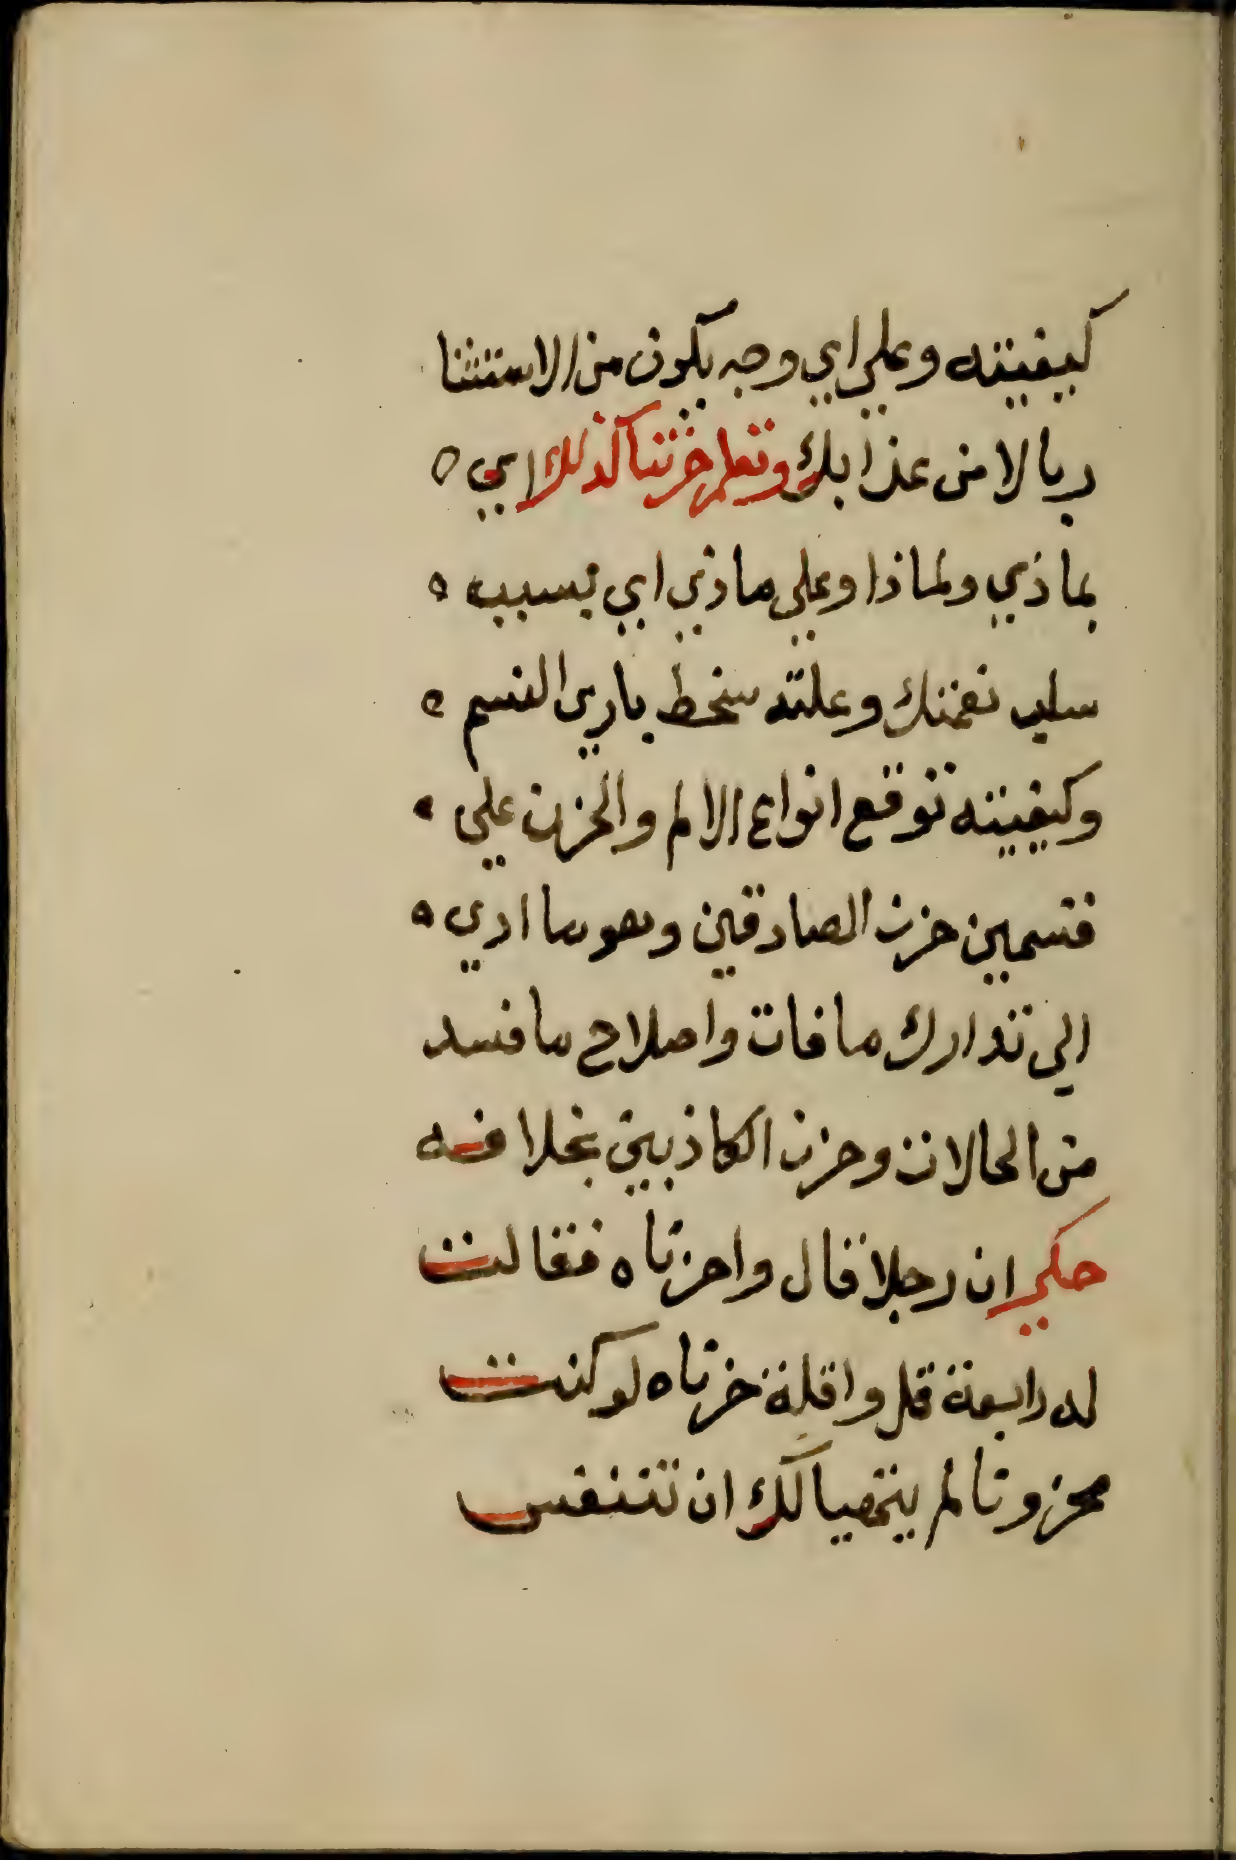 كيفيته وعلي اي وجه يكون من الاستثنا
ربا لا من عذابك وتعلم حزننا كذلك اي ه
بماذي ولماذا وعلي ماذي اي بسبب ه
سلب نعمتك وعلته سخط باري النسم ه
وكيفيته توقع انواع الالم والحزن علي ه
قسمين حزن الصادقين وهو ما ادي ه
الي تدارك ما فات واصلاح ما فسد
من الحالات وحزن الكاذبين بخلافه
حكي ان رجلا قال واحزناه فقالت
له رابعة قل واقلة حزناه لو كنت
محزونا لم يتهيا لك ان تتنفس